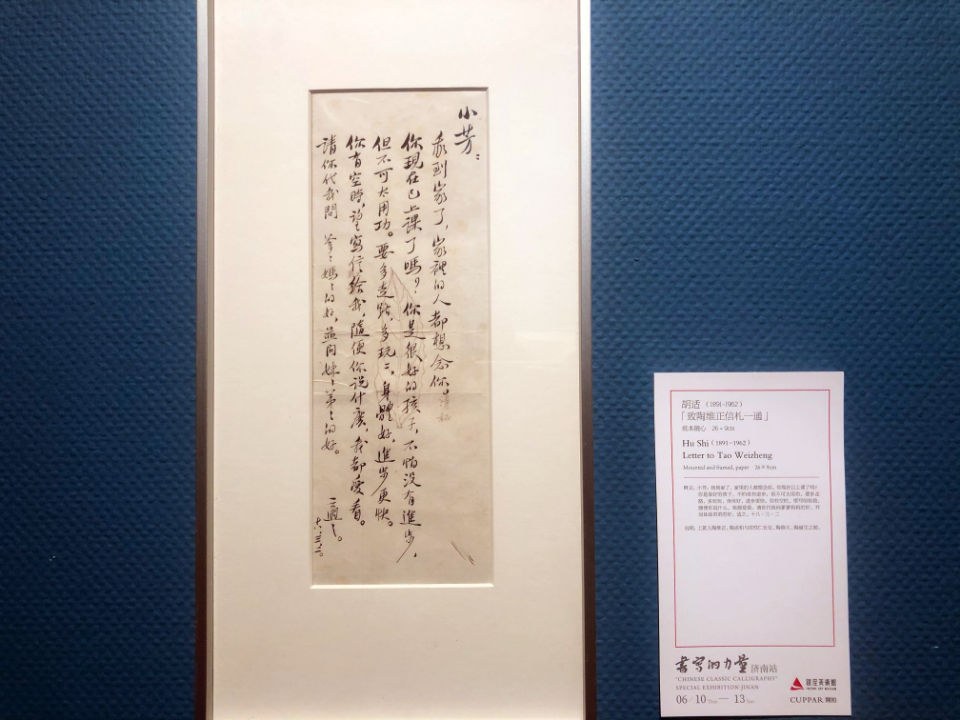 小芳：
我到家了，家裡的人都想念你。
你現在已上课了嗎？你是很好的孩子，不怕沒有進步，
但不可太用功。要多走路，多玩〻。身體好，進步更快。
你有空時，望寫信給我，隨便你说什麽，我都愛看。
請你代我問 爹〻媽〻的好，並问妹〻弟〻的好。
適之。
胡适（1891-1962）
「致陶维正信札一通」
纸本镜心 26×9cm
Hu Shi（1891-1962）
Letter to Tao Weizheng
Mounted and framed, paper 26×9cm
書寫的力量 济南站
"CHINESE CLASSIC CALLIGRAPHY"
SPECIAL EXHIBITION·JINAN
06 / 10 Thur — 13 Sun
銀座美術館
CUPPAR